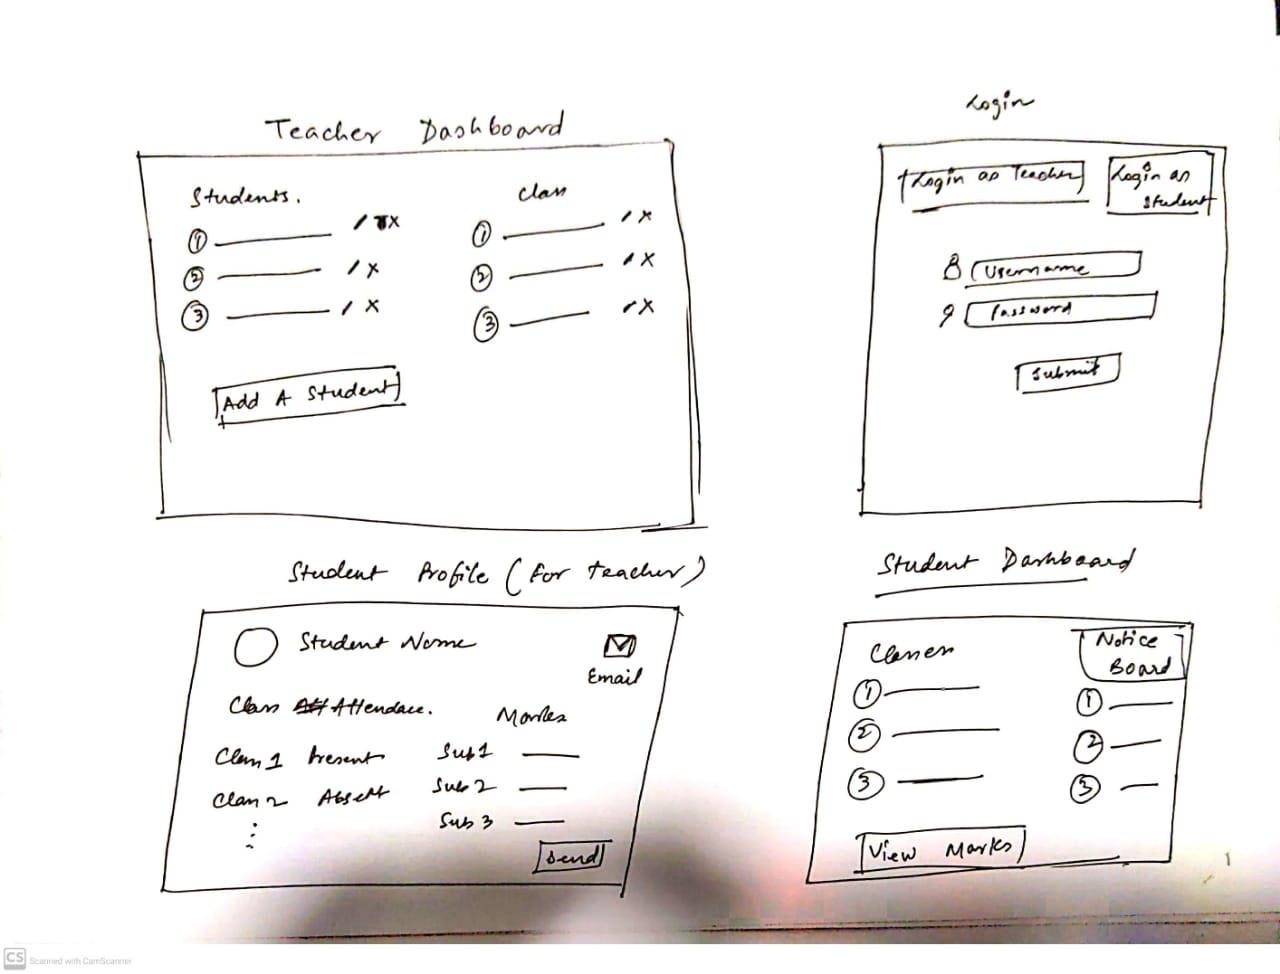 Teacher Dashboard
Students.
① / X
② / X
③ / X
Class
① / X
② / X
③ / X
Add A Student
Login
Login as Teacher
Login as
Student
Username
Password
Submit
Student Profile (For teacher)
Student Name
Email
Class Attendace.
Class 1 Present
Class 2 Absent
Marks
Sub 1
Sub 2
Sub 3
Send
Student Dashboard
Classes
①
②
③
Notice
Board
①
②
③
View Marks
CS Scanned with CamScanner